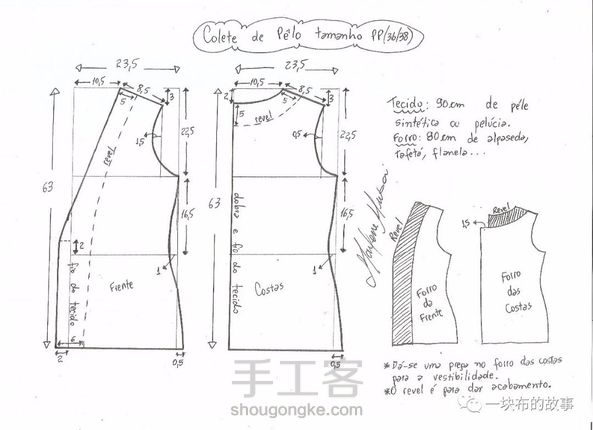 Colete de Pêlo tamanho PP/(36/38)
23,5
10,5
8,5
5
3
revel
1,5
22,5
63
16,5
2
1
fio do tecido
Frente
6
2
0,5
23,5
10,5
8,5
2
5
3
5
revel
0,5
22,5
63
16,5
dobra e fio do tecido
1
Costas
0,5
Marlene Mukai
Tecido: 90cm de pêle
sintética ou pelúcia.
Forro: 80cm de alpaseda,
tafetá, flanela...
Revel
Forro
da
Frente
Revel
1,5
Forro
das
Costas
*Dá-se uma prega no forro das costas
para a vestibilidade.
*O revel é para dar acabamento.
手工客
shougongke.com
一块布的故事